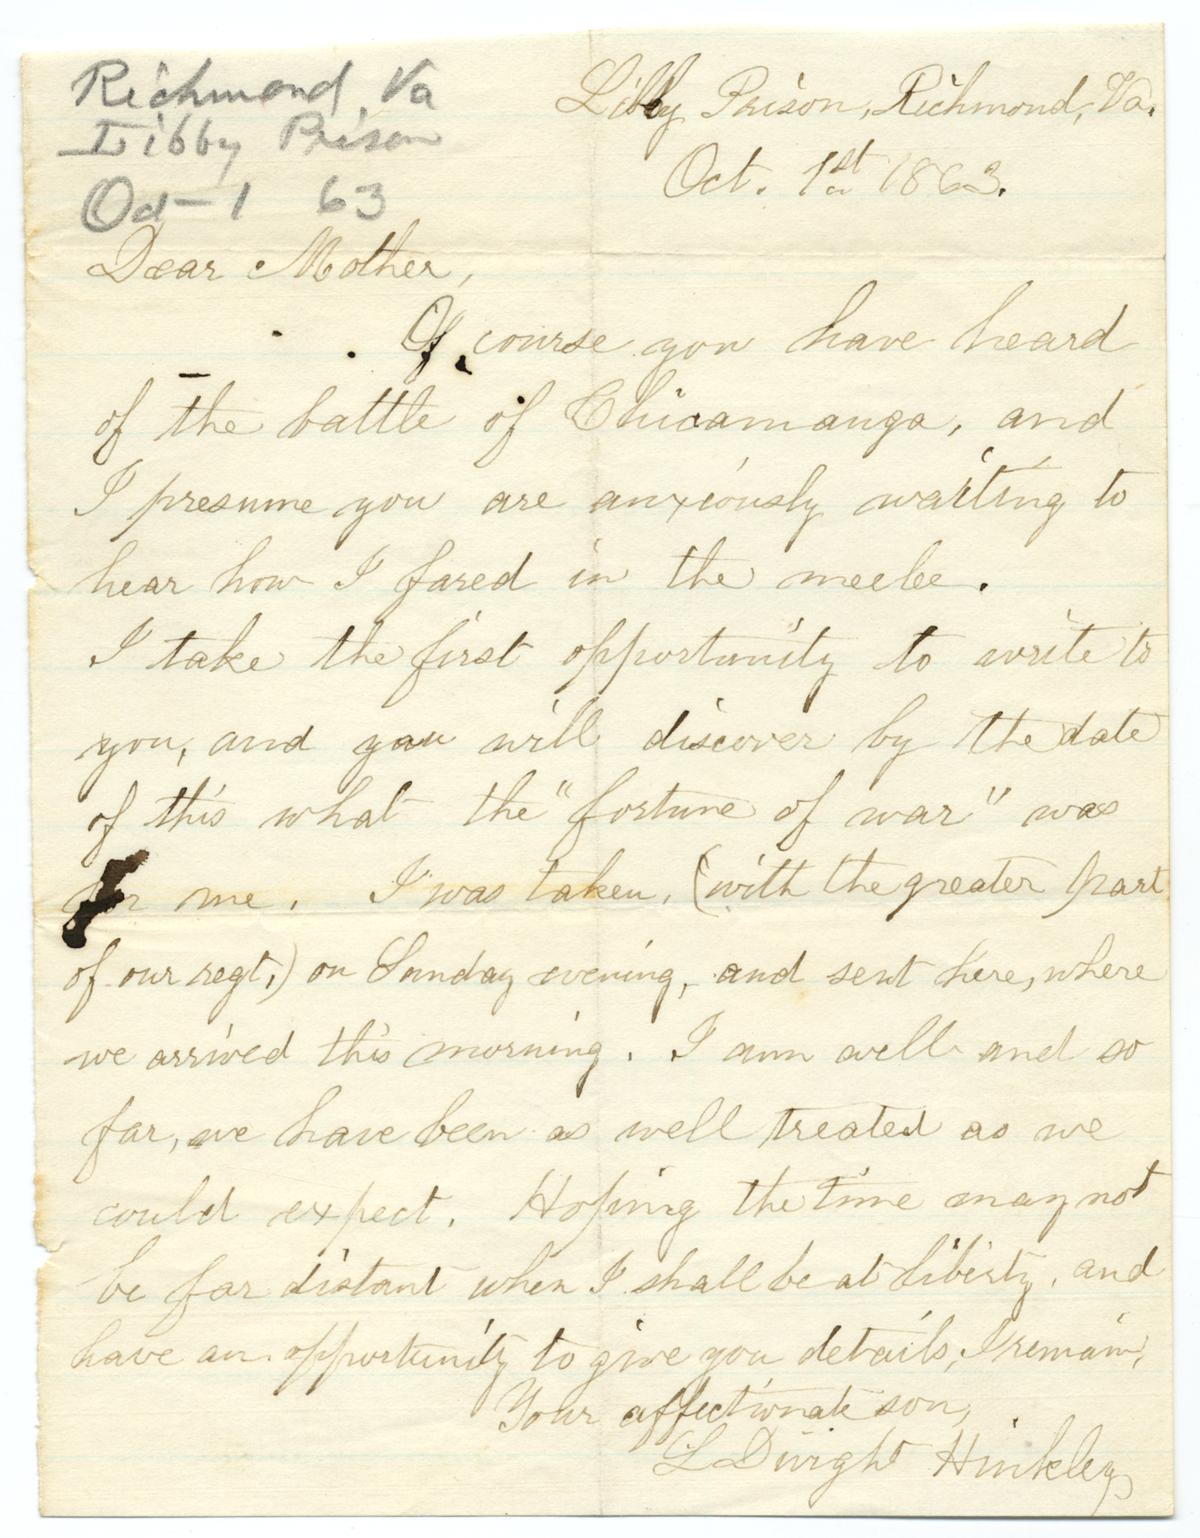 Richmond, Va
Libby Prison
Oct 1 63
Libby Prison, Richmond, Va.
Oct. 1st 1863.
Dear Mother,
Of course you have heard
of the battle of Chicamauga, and
I presume you are anxiously waiting to
hear how I fared in the meelee.
I take the first opportunity to write to
you, and you will discover by the date
of this what the "fortune of war" was
for me. I was taken, (with the greater part
of our regt,) on Sunday evening, and sent here, where
we arrived this morning. I am well and so
far, we have been as well treated as we
could expect. Hoping the time may not
be far distant when I shall be at liberty, and
have an opportunity to give you details, I remain,
Your affectionate son,
L Dwight Hinkley